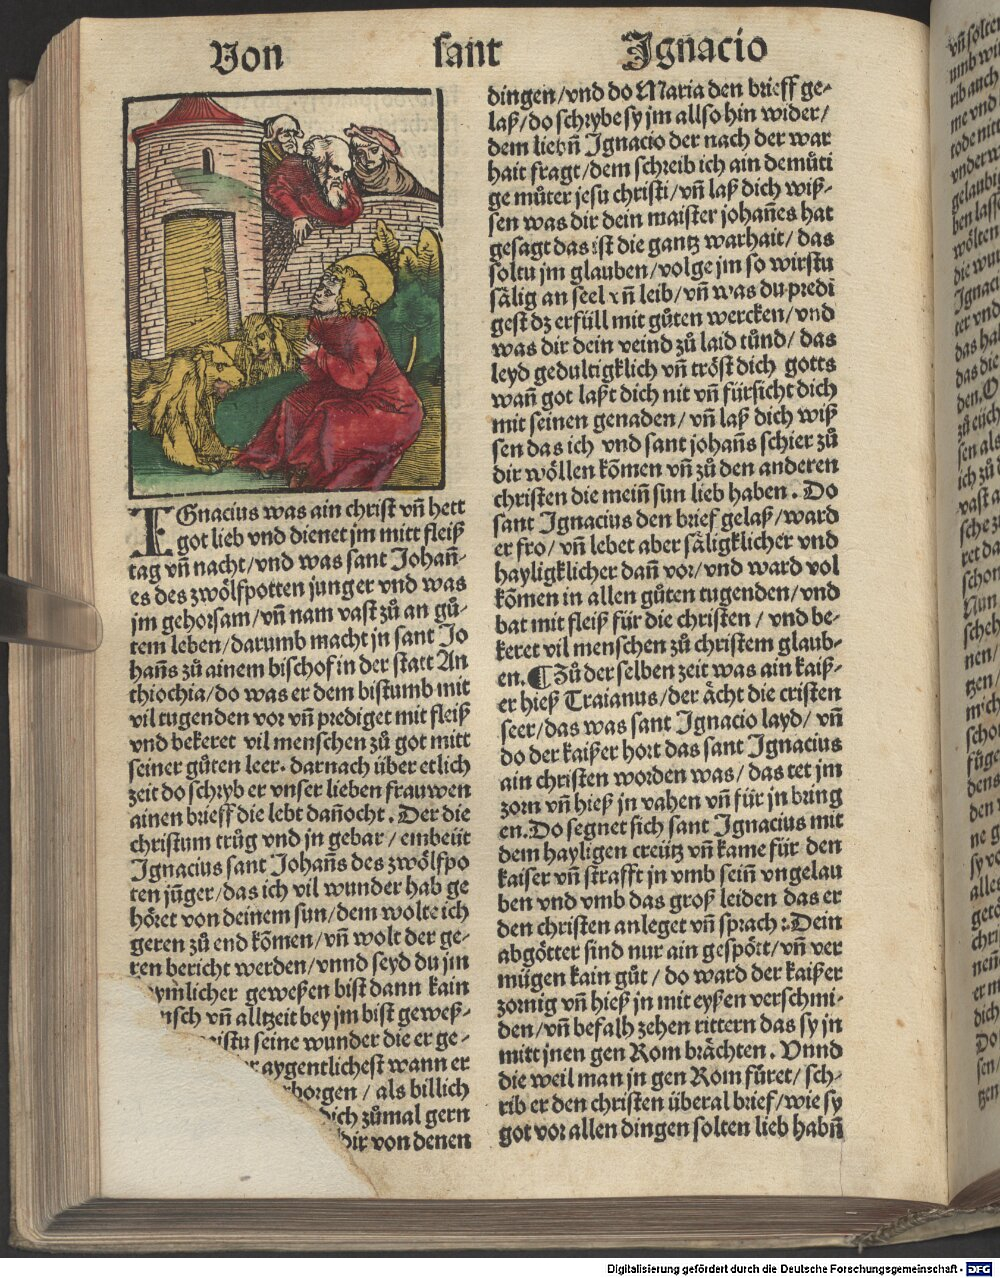 Von sant Ignacio
IGnacius was ain christ vñ hett
got lieb vnd dienet jm mitt fleiß
tag vñ nacht/vnd was sant Johañ-
es des zwölfpotten junger vnd was
jm gehorsam/vñ nam vast zů an gů-
tem leben/darumb macht jn sant Jo
hañs zů ainem bischof in der statt An
thiochia/do was er dem bistumb mit
vil tugenden vor vñ prediget mit fleiß
vnd bekeret vil menschen zů got mitt
seiner gůten leer. darnach über etlich
zeit do schryb er vnser lieben frauwen
ainen brieff die lebt dañocht. Der die
christum trůg vnd jn gebar/embeüt
Ignacius sant Johañs des zwölfpo
ten jũger/das ich vil wunder hab ge
höret von deinem sun/dem wolte ich
geren zů end kõmen/vñ wolt der ge-
ren bericht werden/vnnd seyd du jm
ymlicher geweßen bist dann kain
nsch vñ alltzeit bey jm bist geweß-
eistu seine wunder die er ge-
r aygentlichest wann er
rborgen/als billich
dich zůmal gern
dir von denen
dingen/vnd do Maria den brieff ge-
laß/do schrybe sy jm allso hin wider/
dem liebñ Ignacio der nach der war
hait fragt/dem schreib ich ain demůti
ge můter jesu christi/vñ laß dich wiß-
sen was dir dein maister johañes hat
gesagt das ist die gantz warhait/das
soltu jm glauben/volge jm so wirstu
sälig an seel vñ leib/vñ was du predi
gest dz erfüll mit gůten wercken/vnd
was dir dein veind zů laid tůnd/das
leyd gedultigklich vñ tröst dich gotts
wañ got laßt dich nit vñ fürsicht dich
mit seinen genaden/vñ laß dich wiß
sen das ich vnd sant johañs schier zů
dir wöllen kõmen vñ zů den anderen
christen die meiñ sun lieb haben. Do
sant Ignacius den brief gelaß/ward
er fro/vñ lebet aber säligklicher vnd
hayligklicher dañ vor/vnd ward vol
kõmen in allen gůten tugenden/vnd
bat mit fleiß für die christen/vnd be-
keret vil menschen zů christem glaub-
en. ¶ Zů der selben zeit was ain kaiß-
er hieß Traianus/der ächt die cristen
seer/das was sant Ignacio layd/vñ
do der kaißer hort das sant Ignacius
ain christen worden was/das tet jm
zorn vñ hieß jn vahen vñ für jn bring
en. Do segnet sich sant Ignacius mit
dem hayligen creütz vñ kame für den
kaiser vñ strafft jn vmb seiñ vngelau
ben vnd vmb das groß leiden das er
den christen anleget vñ sprach: Dein
abgötter sind nur ain gespött/vñ ver
mügen kain gůt/do ward der kaißer
zornig vñ hieß jn mit eyßen verschmi-
den/vñ befalh zehen rittern das sy jn
mitt jnen gen Rom brächten. Vnnd
die weil man jn gen Rom füret/sch-
rib er den christen überal brief/wie sy
got vor allen dingen solten lieb habñ
Digitalisierung gefördert durch die Deutsche Forschungsgemeinschaft - DFG